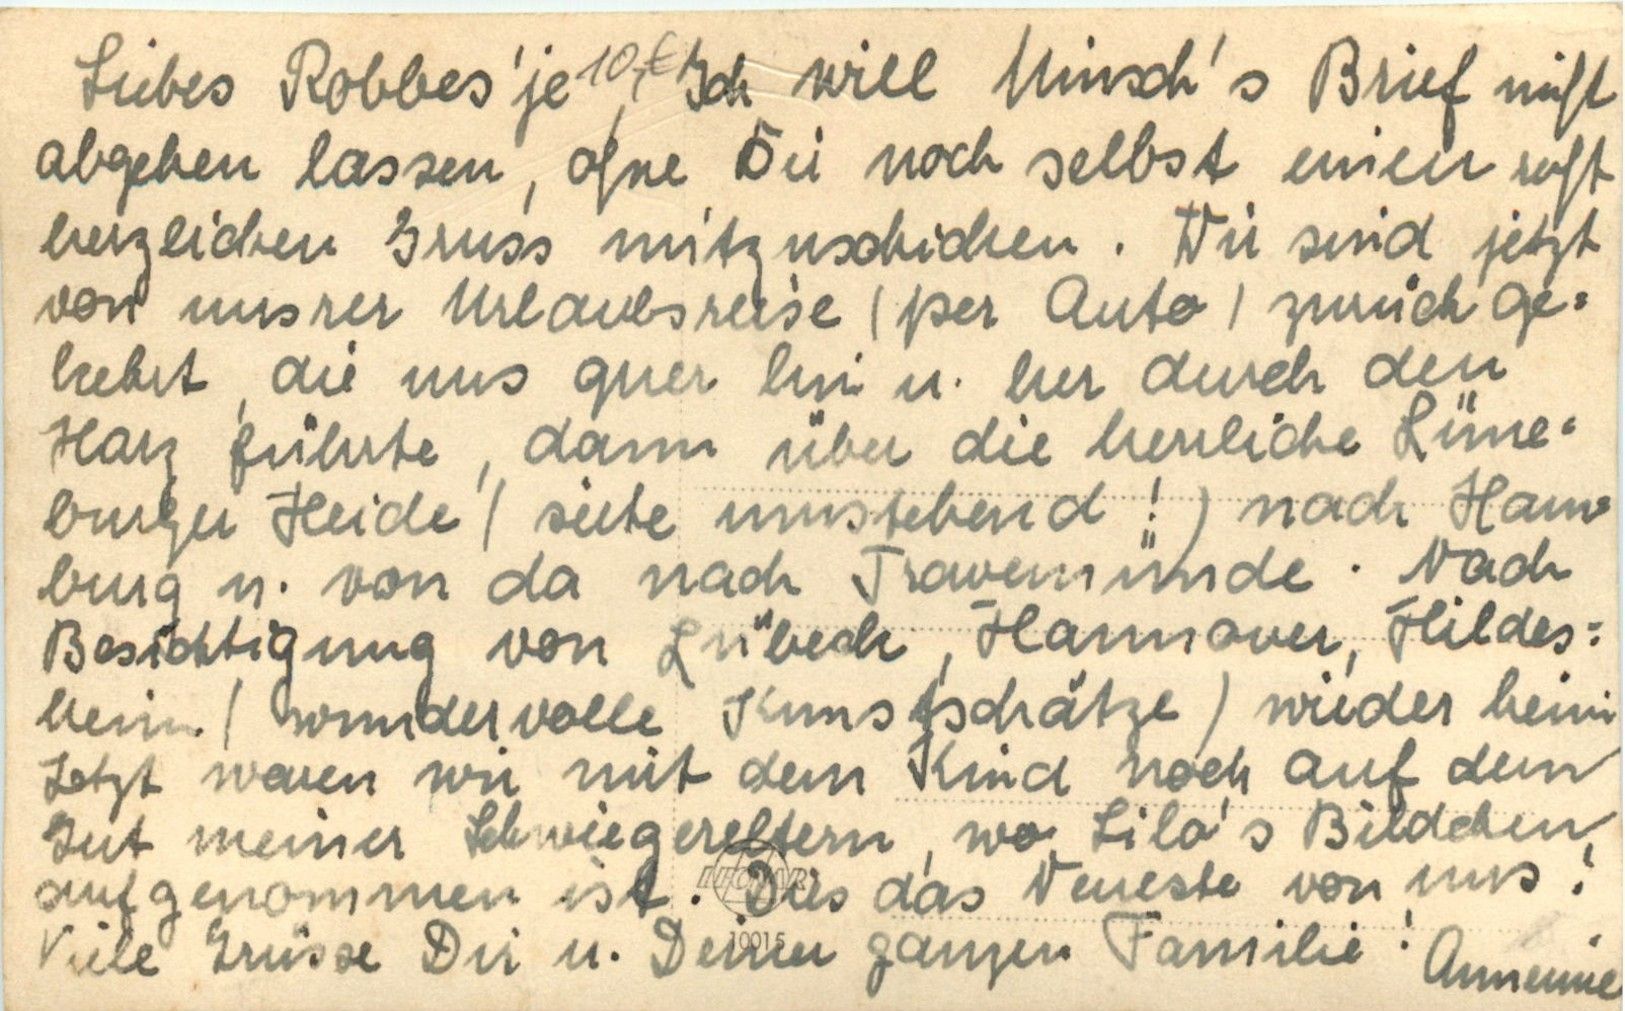 Liebes Robbes'je 10,-€, Ich will Minsch's Brief nicht
abgehen lassen, ohne Dir noch selbst einen recht
herzlichen Gruss mitzuschicken. Wir sind jetzt
von unsrer Urlaubsreise (per Auto) zurück ge=
kehrt, die uns quer hin u. her durch den
Harz führte, dann über die herrliche Lüne=
burger Heide (siehe umstehend!) nach Ham=
burg u. von da nach Travemünde. Nach
Besichtigung von Lübeck, Hannover, Hildes=
heim (wundervolle Kunstschätze) wieder heim
Jetzt waren wir mit dem Kind noch auf dem
Gut meiner Schwiegereltern, wo Lilo's Bildchen
aufgenommen ist. Dies das Neueste von uns!
LEONAR
Viele Grüsse Dir u. Deiner ganzen Familie!
10015
Annemie